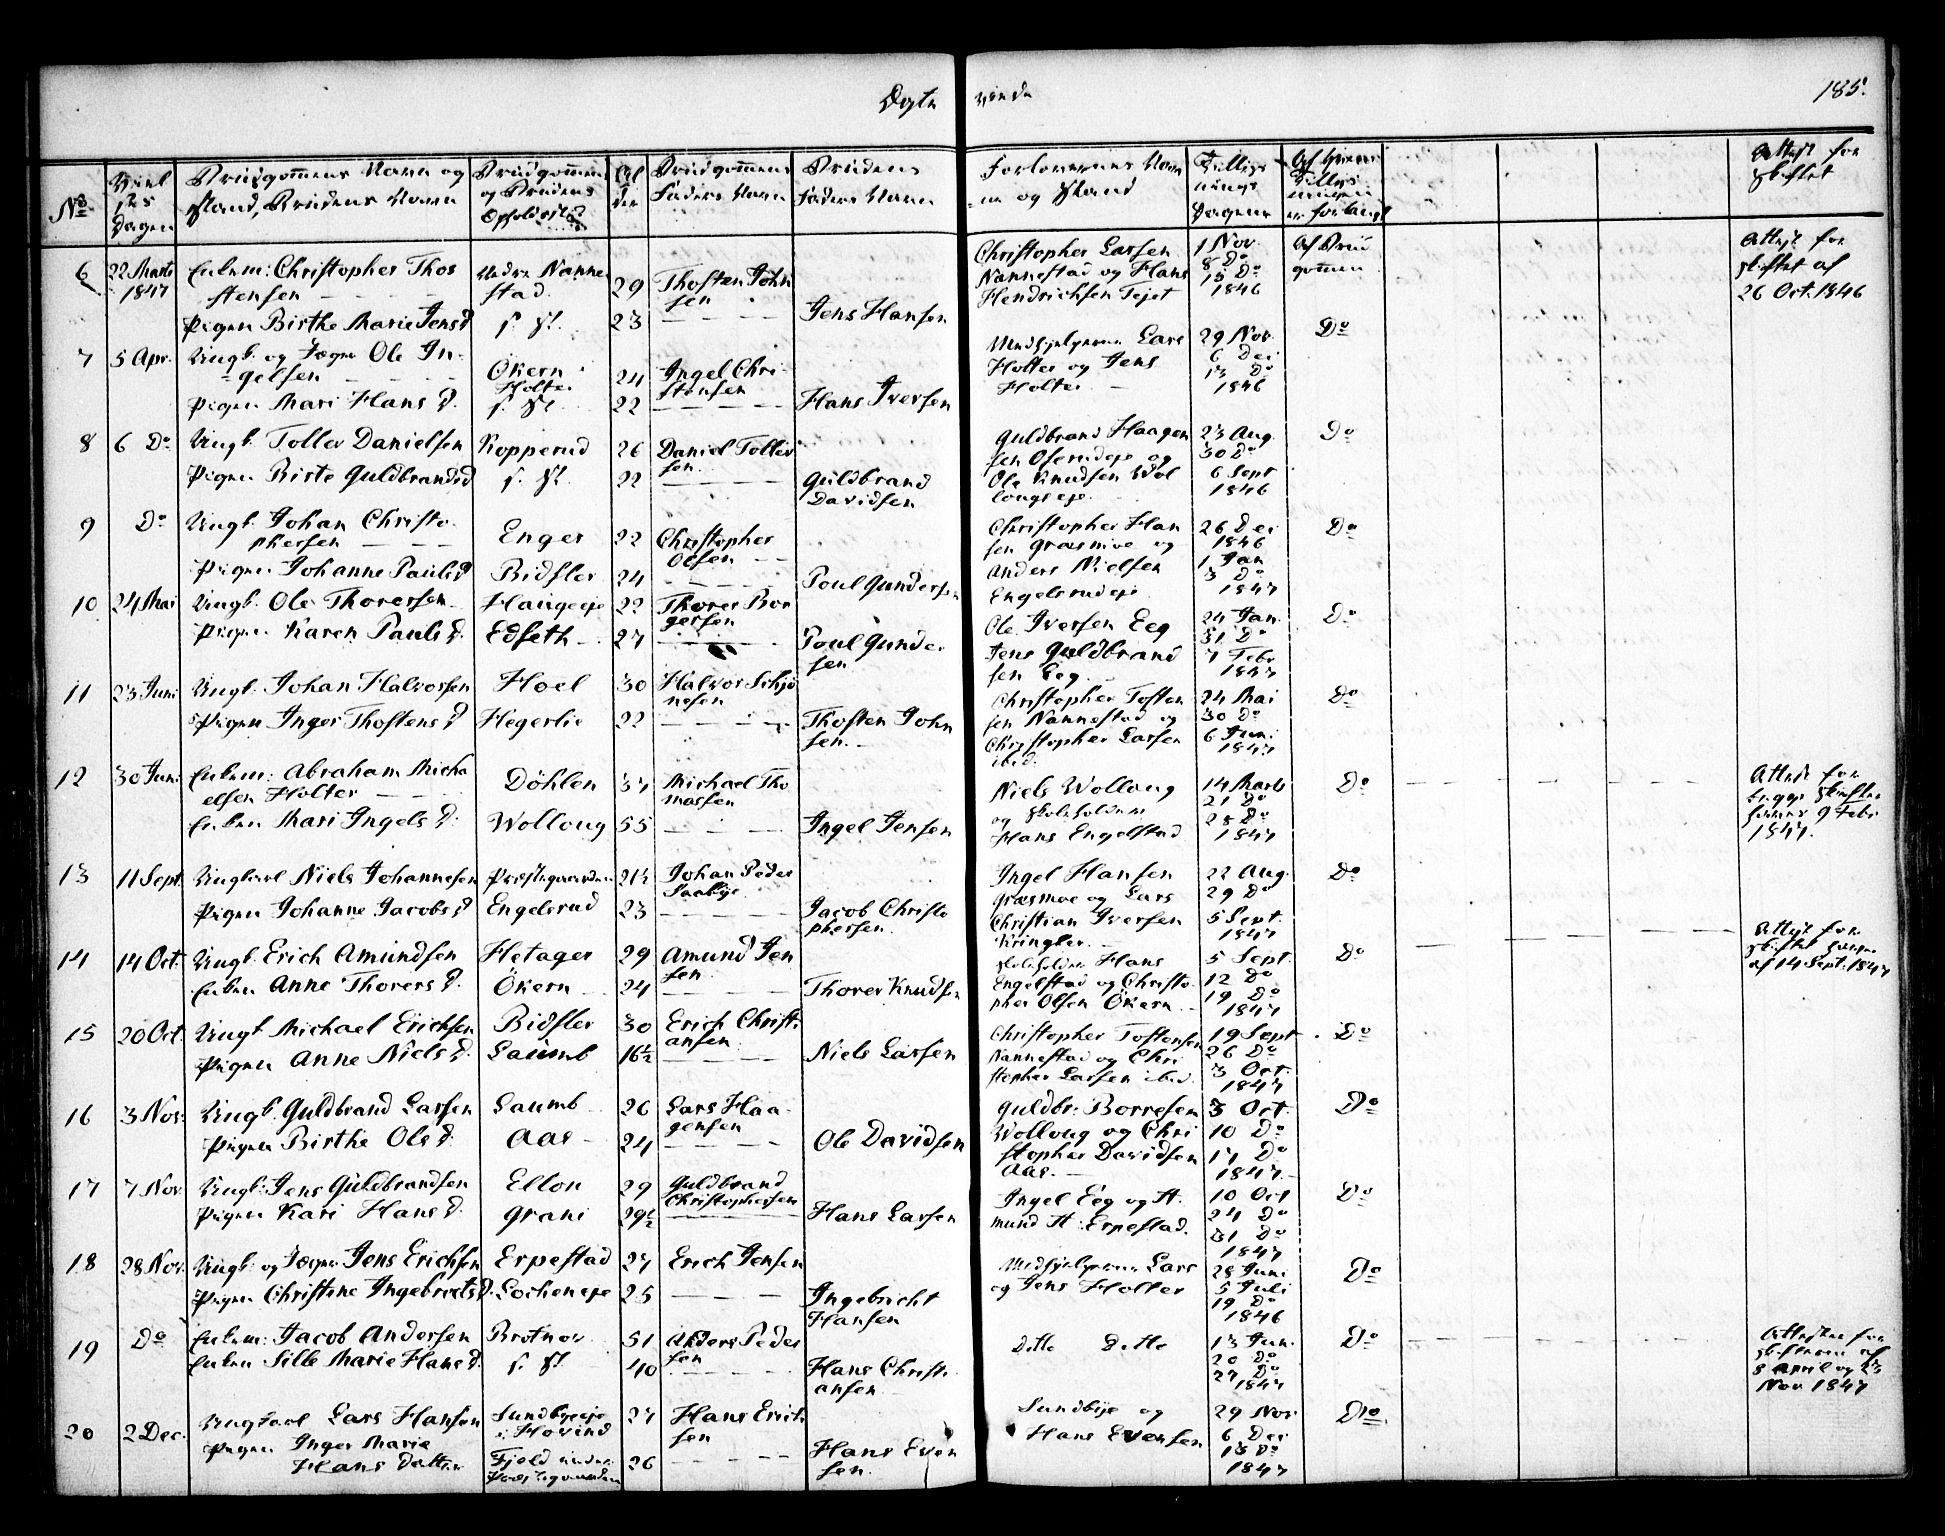 Ægte viede 185.
No
Viel
sees
Dagen
Brudgommens Navn og
Stand, Brudens Navn
Brudgommens
og Brudens
Opholdsted
Al
der
Brudgommens
Faders Navn
Brudens
Faders Navn
Forlovernes Nav
ne og Stand
Tillys
nings
Dagene
Af hvem
Tillys
ningen
er forlangt
Attest for
Skiftet
6 22 Marts
1847
Enkem: Christopher Thos
stensen
Nedre Nanne
stad
29
Thosten John
sen
Pigen Birthe Marie Jensd
s. St.
23
Jens Hansen
Christopher Larsen
Nannestad og Hans
Hendrichsen Tejet
1 Nov.
8 Do
15 Do
1846
Af Brud
gommen
Attest for
Skiftet af
26 Oct. 1846
7 5 Apr.
Ungk. og Jæger Ole In-
gelsen
Økern
Holter
24
Ingel Chri-
stensen
Pigen Mari Hans D.
s. St.
22
Hans Iversen
Medhjelperne Lars
Holter og Jens
Holter
29 Nov.
6 Dec
13 Do
1846
Do
8 6 Do
Ungk. Tollev Danielsen
Kopperud
26
Daniel Tollev
sen
Pigen Birte Guldbrandsd
s. St.
22
Guldbrand
Davidsen
Guldbrand Haagen
sen Oserudeje og
Ole Knudsen Wol
lougseje
23 Aug.
30 Do
6 Sept
1846
Do
9 Do
Ungk. Johan Christo-
phersen
Enger
22
Christopher
Olsen
Pigen Johanne Pauls D
Bidsler
24
Poul Gundersen
Christopher Han
sen Græsmoe og
Anders Nielsen
Engelsrudeje
26 Dec
1846
1 Jan
3 Do
1847
Do
10 24 Mai
Ungk. Ole Thorersen
Haugeeje
22
Thorer Bor
gersen
Pigen Karen Pauls D.
Edseth
27
Poul Gunder
sen
Ole Iversen Eeg
Jens Guldbrand
sen Eeg
24 Jan.
31 Do
7 Febr
1847
Do
11 23 Juni
Ungk. Johan Halvorsen
Hoel
30
Halvor Schjø
nesen
Pigen Inger Thostens D
Hegerlie
22
Thosten John
sen.
Christopher Tosten
sen Nannestad og
Christopher Larsen
ibid.
24 Mai
30 Do
6 Juni
1847
Do
12 30 Juni
Enkem: Abraham Micha
elsen Holter
Döhlen
37
Michael Tho
massen
Enken Mari Ingels D.
Wolloug
55
Ingel Jensen
Niels Wolloug
og Skoleholder
Hans Engelstad
14 Marts
21 Do
28 Do
1847
Do
Attest for
begge Skifter
9 Febr
1847.
13 11 Sept.
Ungkarl Niels Johannesen
Præstegaarden
21½
Johan Peder
Saabye
Pigen Johanne Jacobs D
Engelsrud
23
Jacob Christo
phersen
Ingel Hansen
Græsmoe og Lars
Christian Iversen
Kringler
22 Aug.
29 Do
5 Sept.
1847
Do
14 14 Oct.
Ungk. Erich Amundsen
Hetager
29
Amund Jen
sen
Enken Anne Thorers D.
Økern
24
Thorer Knudsen
Skoleholder Hans
Engelstad og Christo-
pher Olsen Økern
5 Sept.
12 Do
19 Do
1847
Do
Attest for
Skiftet
af 14 Sept. 1847
15 20 Oct.
Ungk. Michael Erichsen
Bidsler
30
Erich Christi
ansen
Pigen Anne Niels D.
Laumb
16½
Niels Larsen
Christopher Tostensen
Nannestad og Chri
stopher Larsen ibid.
19 Sept
26 Do
3 Oct.
1847
Do
16 3 Nov.
Ungk. Guldbrand Larsen
Laumb
26
Lars Haa-
gensen
Pigen Birthe Ols D.
Aas
24
Ole Davidsen
Guldbr: Borresen
Wolloug og Chri
stopher Davidsen
Aas.
3 Oct.
10 Do
17 Do
1847
Do
17 7 Nov.
Ungk. Jens Guldbrandsen
Ellon
29
Guldbrand
Christophersen
Pigen Kari Hans D.
Grani
29½
Hans Larsen
Ingel Eeg og A-
mund A: Erpestad.
10 Oct
24 Do
31 Do
1847
Do
18 28 Nov.
Ungk. og Jæger Jens Erichsen
Erpestad
27
Erich Jensen
Pigen Christine Ingebrets D.
Locheneje
25
Ingebricht
Hansen
Medhjelperne Lars
og Jens Holter
28 Juni
5 Juli
19 Do
1846
Do
19 Do
Enkem: Jacob Andersen
Brotnov
51
Anders Peder
sen
Enken Sille Marie Hans D.
s. St.
40
Hans Christi
ansen
Ditto Ditto
13 Jun.
20 Do
27 Do
1847
Do
Attester for
Skifterne af
8 April og 23
Nov 1847
20 2 Dec.
Ungkarl Lars Hansen
Sundbyeeje
i Hovind
27
Hans Erich
sen
Pigen Inger Marie
Hans Datter
Fjeld under
Præstegaarden
26
Hans Even
sen.
Sundbye og
Hans Evensen
29 Nov.
6 Dec
13 Do
1847
Do